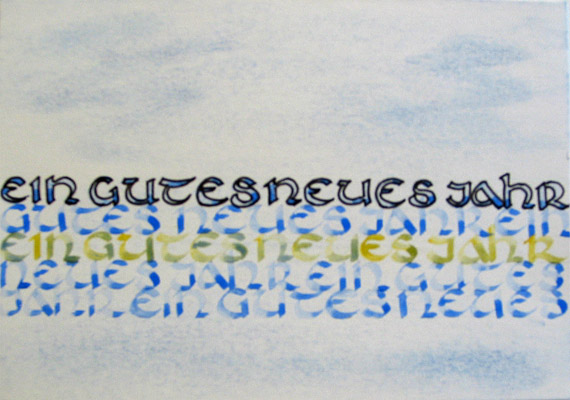 EIN GUTES NEUES JAHR
GUTES NEUES JAHR EIN
EIN GUTES NEUES JAHR
NEUES JAHR EIN GUTES
JAHR EIN GUTES NEUES